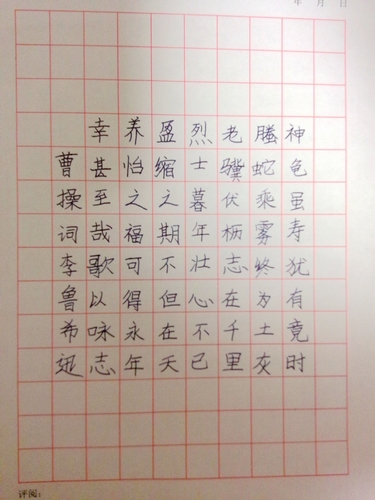 年 月 日
神龟虽寿犹有竟时
螣蛇乘雾终为土灰
老骥伏枥志在千里
烈士暮年壮心不已
盈缩之期不但在天
养怡之福可得永年
幸甚至哉歌以咏志
曹操词李鲁希迅
评阅: